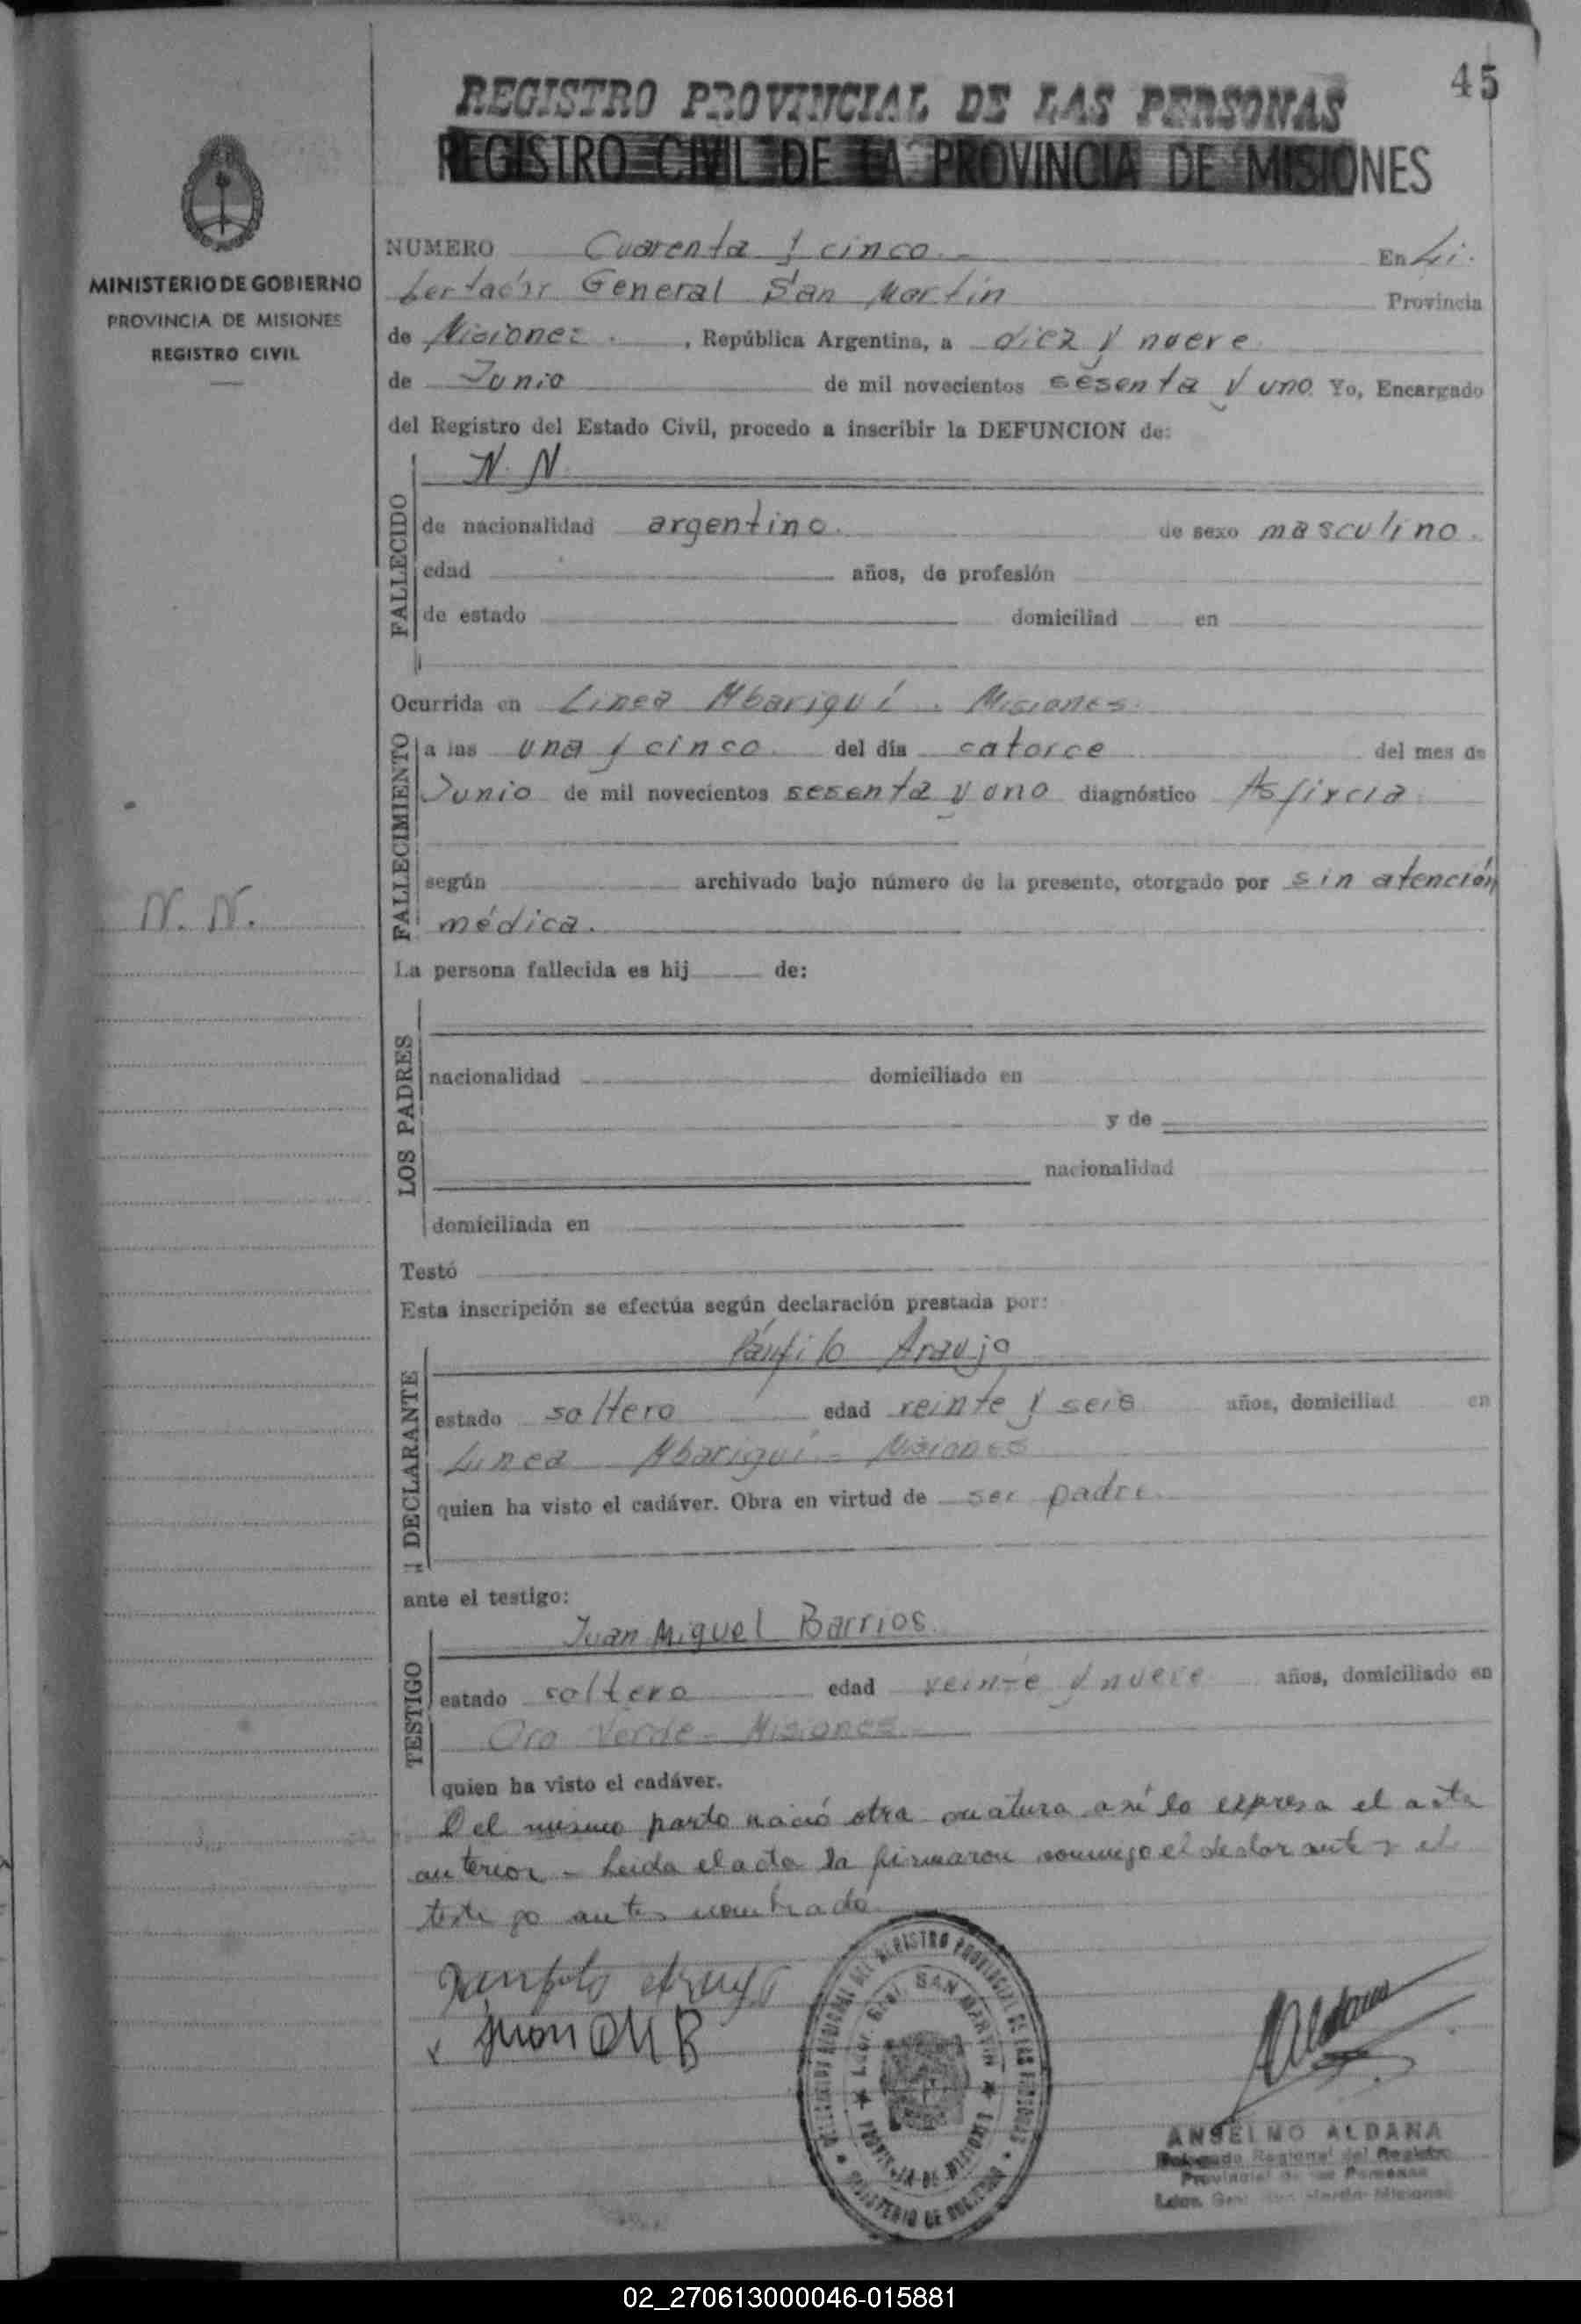 45
REGISTRO PROVINCIAL DE LAS PERSONAS
REGISTRO CIVIL DE LA PROVINCIA DE MISIONES
MINISTERIO DE GOBIERNO
PROVINCIA DE MISIONES
REGISTRO CIVIL
NUMERO Cuarenta y cinco.- En Li-
bertador General San Martín Provincia
de Misiones . , República Argentina, a diez y nueve
de Junio de mil novecientos sesenta y uno Yo, Encargado
del Registro del Estado Civil, procedo a inscribir la DEFUNCION de:
FALLECIDO
N. N
de nacionalidad argentino. de sexo masculino.
edad años, de profesión
de estado domiciliad en
Ocurrida en Linea Mbariguí - Misiones.
FALLECIMIENTO
a las una y cinco del día catorce del mes de
Junio de mil novecientos sesenta y uno diagnóstico Asfixcia
según archivado bajo número de la presente, otorgado por sin atención
médica.
N. N.
La persona fallecida es hij de:
LOS PADRES
nacionalidad domiciliado en
y de
nacionalidad
domiciliada en
Testó
Esta inscripción se efectúa según declaración prestada por:
DECLARANTE
Pánfilo Araujo
estado soltero edad veinte y seis años, domiciliad en
Linea Mbariguí - Misiones
quien ha visto el cadáver. Obra en virtud de ser padre
ante el testigo:
TESTIGO
Juan Miguel Barrios
estado soltero edad veinte y nueve años, domiciliado en
Oro Verde - Misiones
quien ha visto el cadáver.
Del mismo parto nació otra criatura así lo expresa el acta
anterior - Leida el acta la firmaron conmigo el declarante y el
testigo antes nombrado
Panfilo Araujo
x Juan M B
DELEGACION REGIONAL DEL REGISTRO PROVINCIAL DE LAS PERSONAS
Ldor. Gral. SAN MARTIN
PROVINCIA DE MISIONES
MINISTERIO DE GOBIERNO
Aldana
ANSELMO ALDANA
Delegado Regional del Registro
Provincial de las Personas
Ldor. Gral. San Martín Misiones
02_270613000046-015881